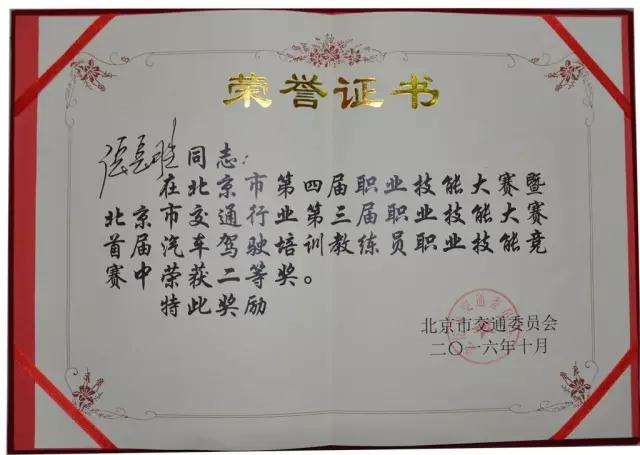 荣誉证书
张长胜 同志：
在北京市第四届职业技能大赛暨
北京市交通行业第三届职业技能大赛
首届汽车驾驶培训教练员职业技能竞
赛中荣获二等奖。
特此奖励
北京市交通委员会
二〇一六年十月